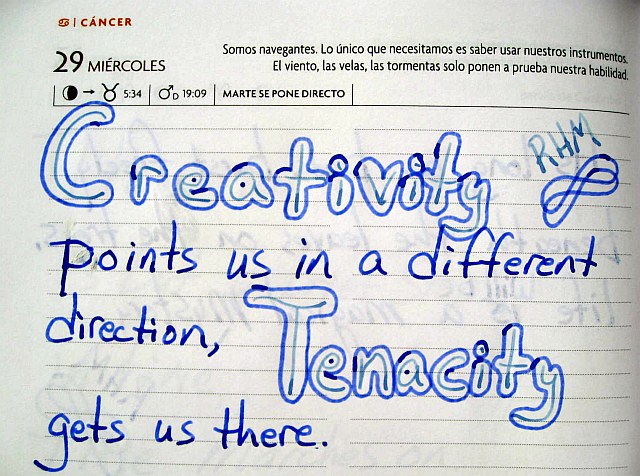 ♋ | CÁNCER
29 MIÉRCOLES
Somos navegantes. Lo único que necesitamos es saber usar nuestros instrumentos.
El viento, las velas, las tormentas solo ponen a prueba nuestra habilidad.
◐ → ♉ 5:34 | ♂D 19:09 | MARTE SE PONE DIRECTO
Creativity
RHM
points us in a different
direction, Tenacity
gets us there.